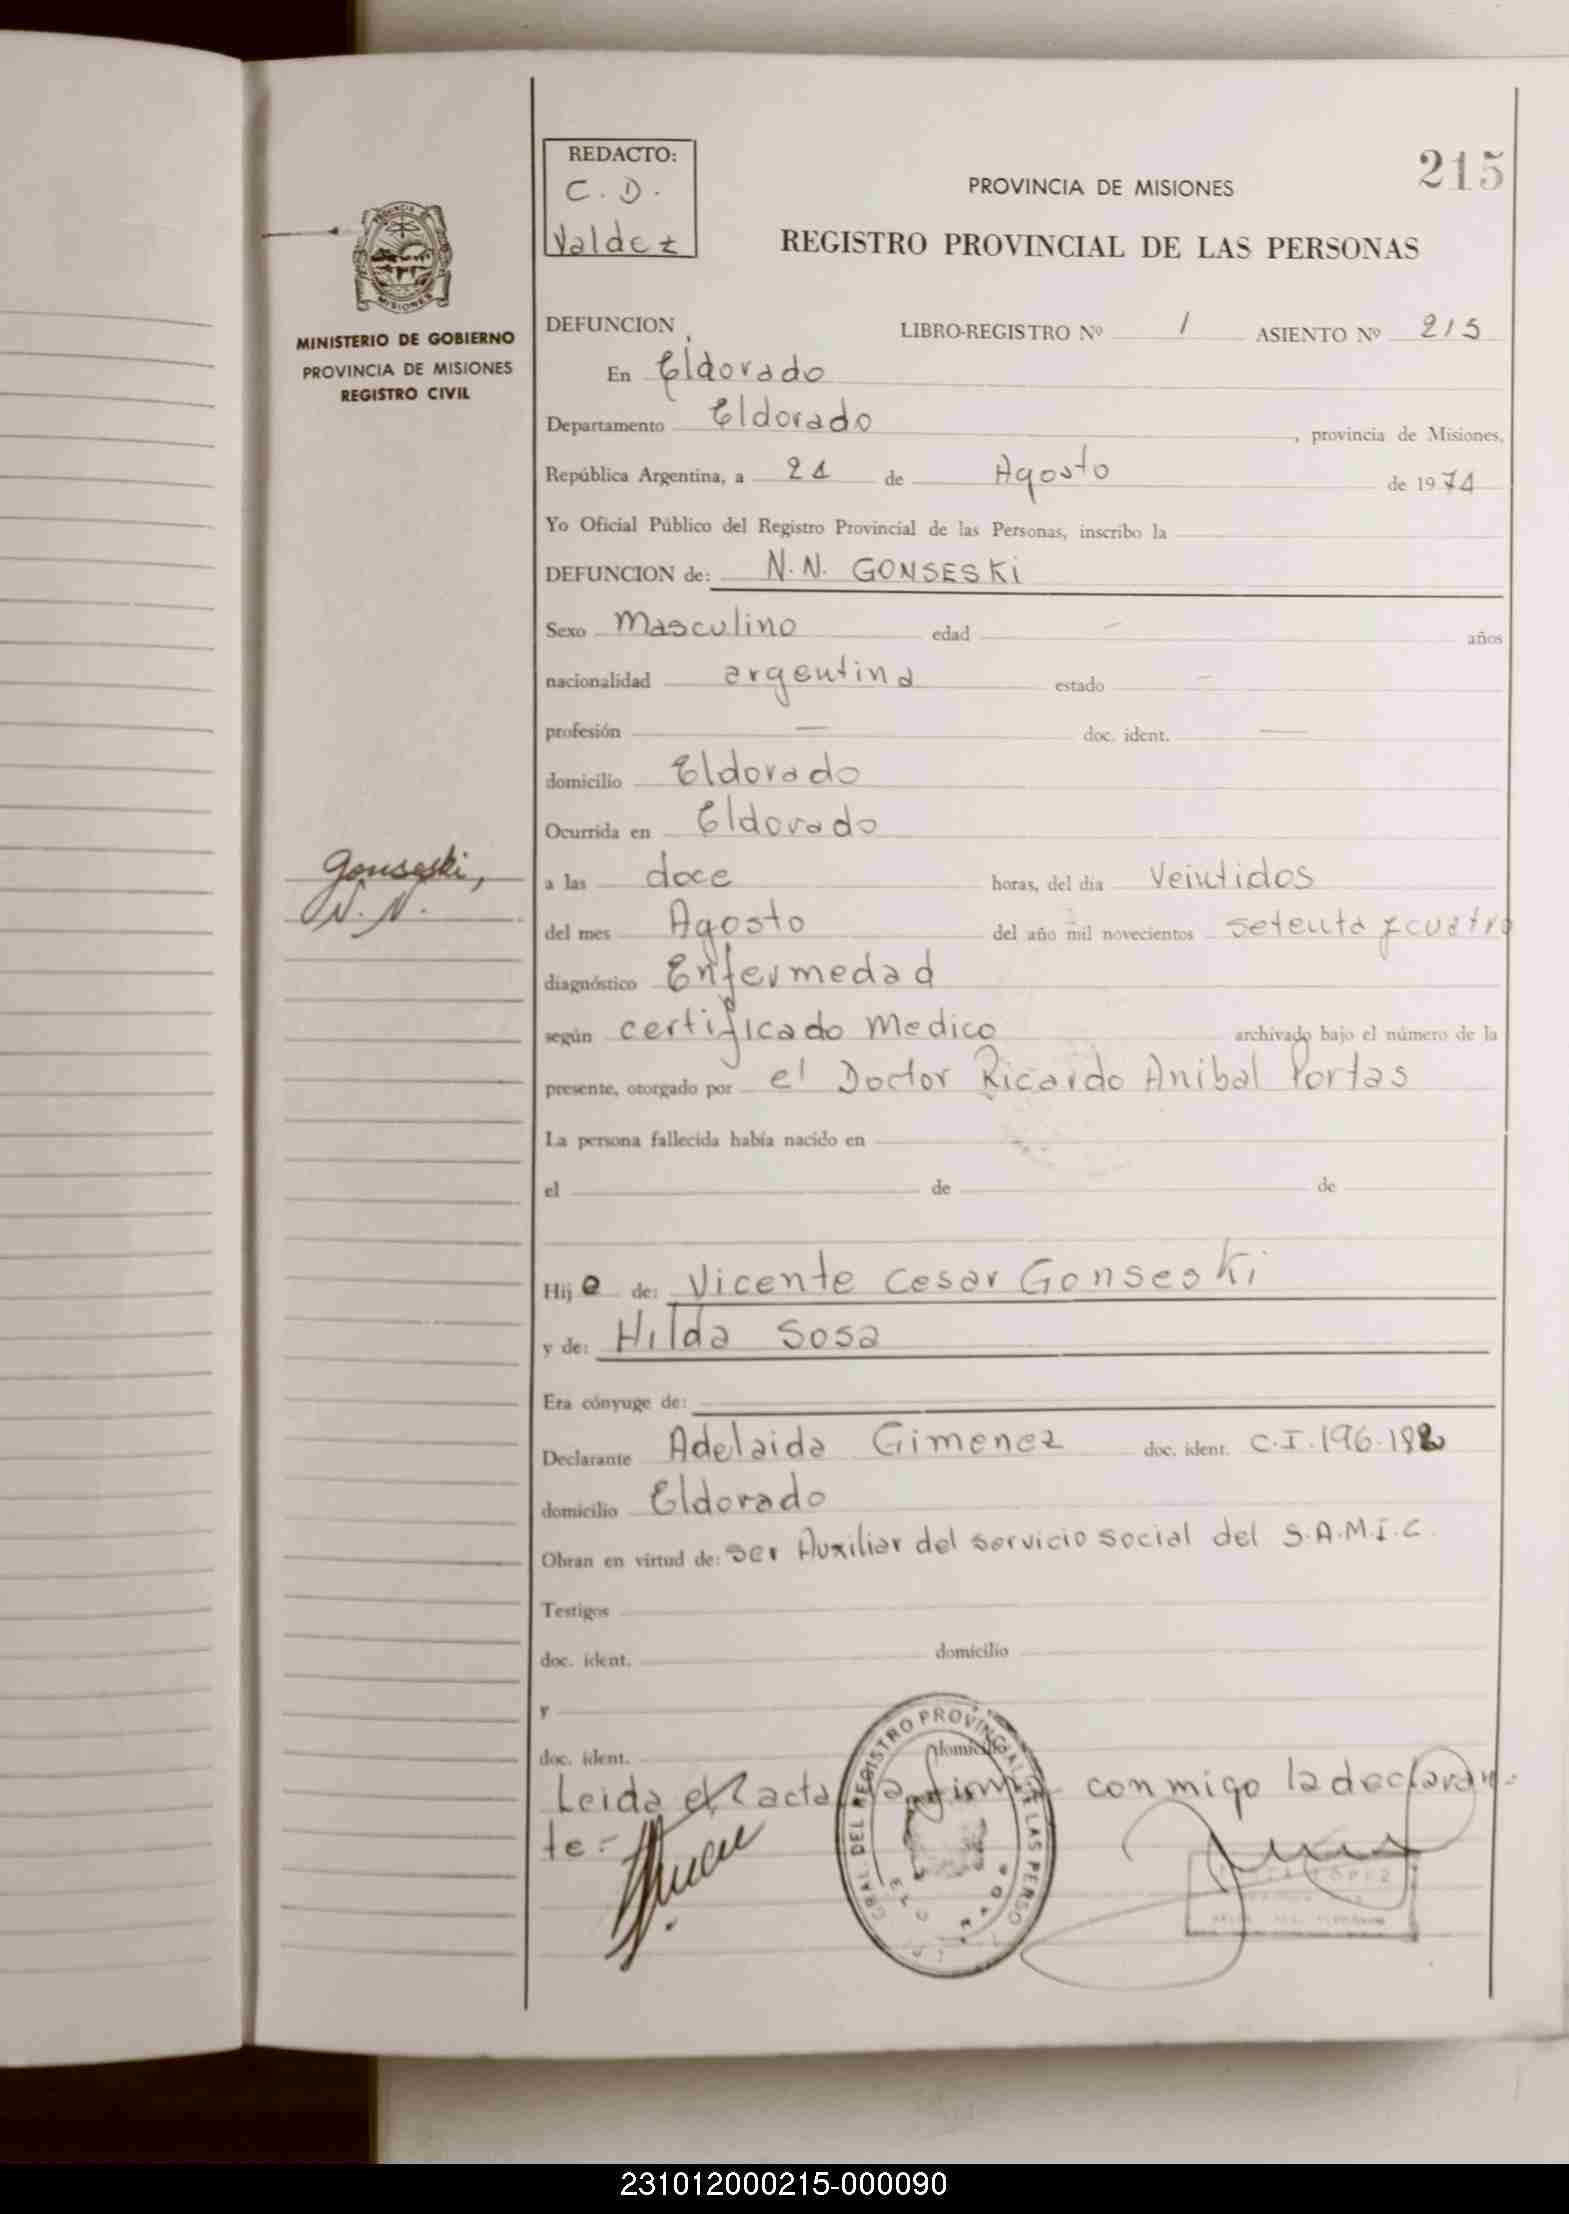 REDACTO:
C. D.
Valdez
215
PROVINCIA DE MISIONES
REGISTRO PROVINCIAL DE LAS PERSONAS
MISIONES
MINISTERIO DE GOBIERNO
PROVINCIA DE MISIONES
REGISTRO CIVIL
DEFUNCION LIBRO-REGISTRO Nº 1 ASIENTO Nº 215
En Eldorado
Departamento Eldorado, provincia de Misiones,
República Argentina, a 24 de Agosto de 1974
Yo Oficial Público del Registro Provincial de las Personas, inscribo la
DEFUNCION de: N.N. GONSESKi
Sexo Masculino edad – años
nacionalidad argentina estado –
profesión — doc. ident. —
domicilio Eldorado
Ocurrida en Eldorado
Gonseski,
N. N.
a las doce horas, del día Veintidos
del mes Agosto del año mil novecientos setenta y cuatro
diagnóstico Enfermedad
según certificado Medico archivado bajo el número de la
presente, otorgado por el Doctor Ricardo Anibal Portas
La persona fallecida había nacido en
el de de
Hijo de: Vicente Cesar Gonseski
y de: Hilda Sosa
Era cónyuge de:
Declarante Adelaida Gimenez doc. ident. C.I. 196.182
domicilio Eldorado
Obran en virtud de: ser Auxiliar del servicio social del S.A.M.I.C.
Testigos
doc. ident. domicilio
y
doc. ident. domicilio
Leida el acta la firma conmigo la declaran-
te =
GRAL. DEL REGISTRO PROVINCIAL DE LAS PERSO
231012000215-000090